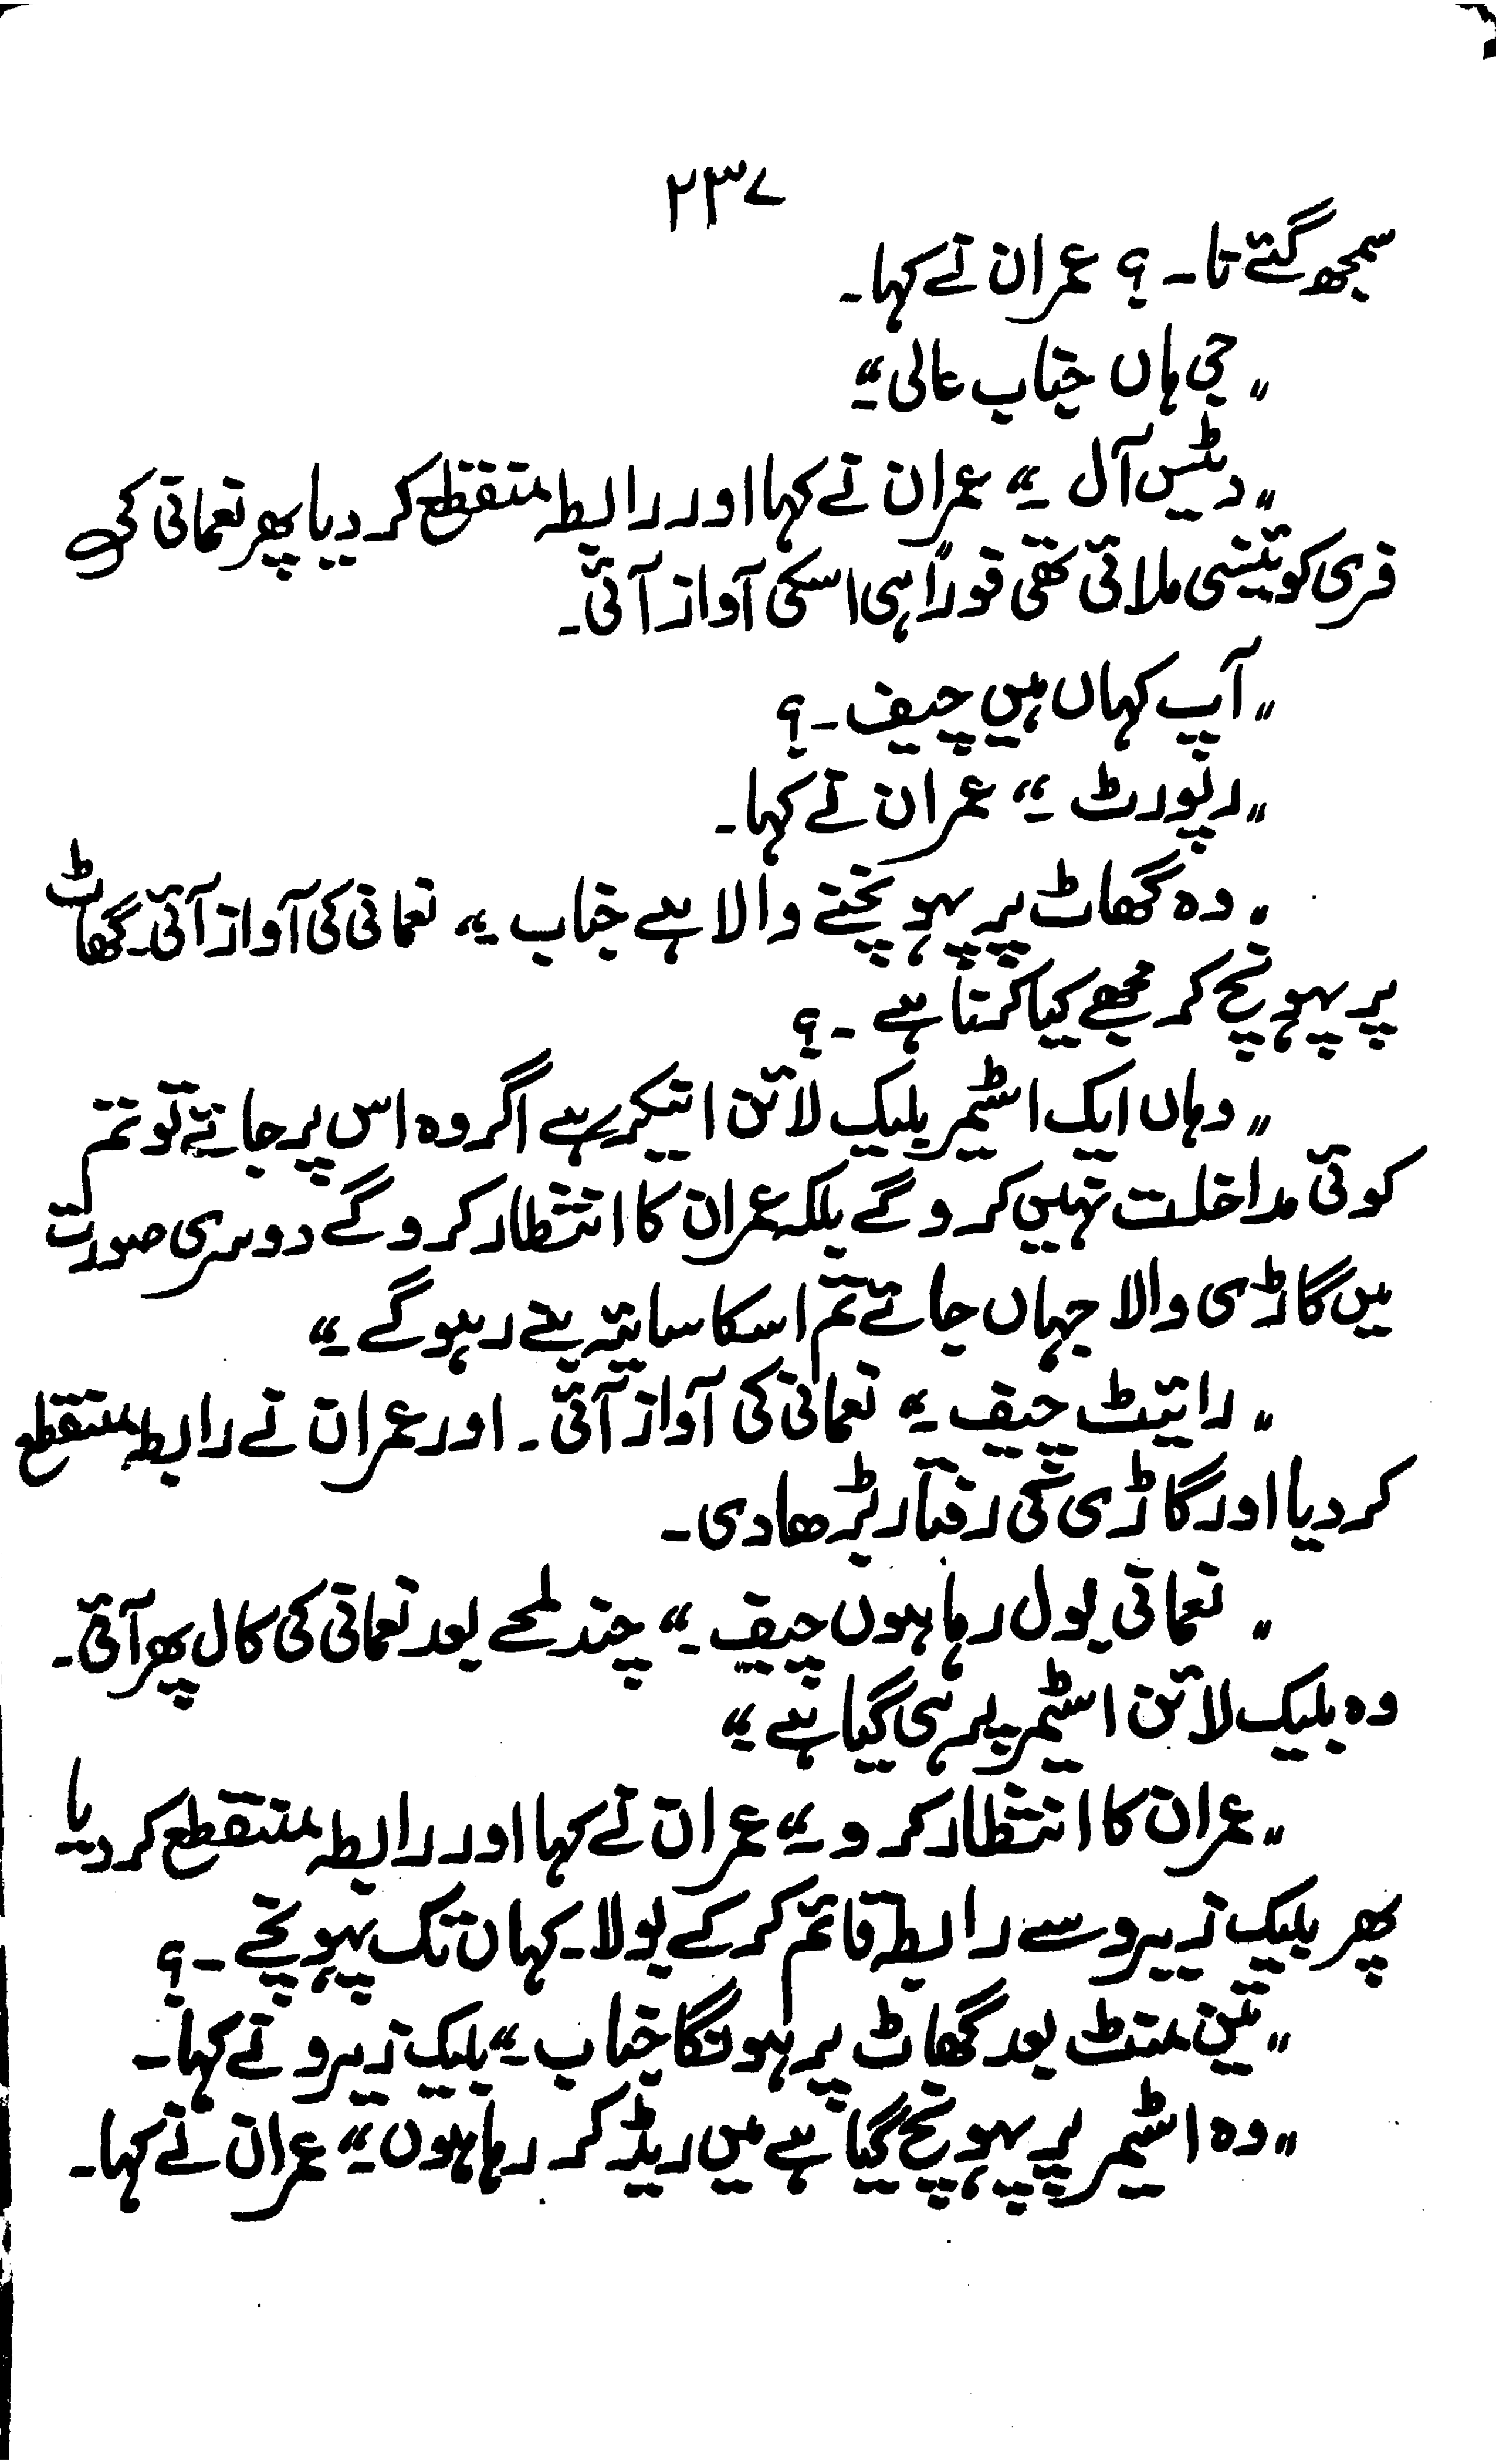 ۲۳۷
سمجھ گئے نا۔ ؟ عمران نے کہا۔
"جی ہاں جناب عالی۔"
"دیٹس آل۔" عمران نے کہا اور رابطہ منقطع کر دیا پھر نعمانی کی
فری کوئینسی ملائی تھی فوراً ہی اسکی آواز آئی۔
"آپ کہاں ہیں چیف۔ ؟
"رپورٹ۔" عمران نے کہا۔
"وہ گھاٹ پر پہونچنے والا ہے جناب۔" نعمانی کی آواز آئی۔ گھاٹ
پر پہونچ کر مجھے کیا کرنا ہے۔ ؟
"وہاں ایک اسٹیمر بلیک لائن اینکر ہے اگر وہ اس پر جائے تو تم
کوئی مداخلت نہیں کرو گے بلکہ عمران کا انتظار کرو گے دوسری صورت
میں گاڑی والا جہاں جائے تم اسکا سایہ بنے رہو گے۔"
"رائیٹ چیف۔" نعمانی کی آواز آئی۔ اور عمران نے رابطہ منقطع
کر دیا اور گاڑی کی رفتار بڑھا دی۔
"نعمانی بول رہا ہوں چیف۔" چند لمحے بعد نعمانی کی کال پھر آئی۔
وہ بلیک لائن اسٹیمر پر ہی گیا ہے۔"
"عمران کا انتظار کرو۔" عمران نے کہا اور رابطہ منقطع کر دیا
پھر بلیک زیرو سے رابطہ قائم کر کے بولا۔ کہاں تک پہونچے۔ ؟
"تین منٹ بعد گھاٹ پر ہونگا جناب۔" بلیک زیرو نے کہا۔
"وہ اسٹیمر پر پہونچ گیا ہے میں ریڈ کر رہا ہوں۔" عمران نے کہا۔